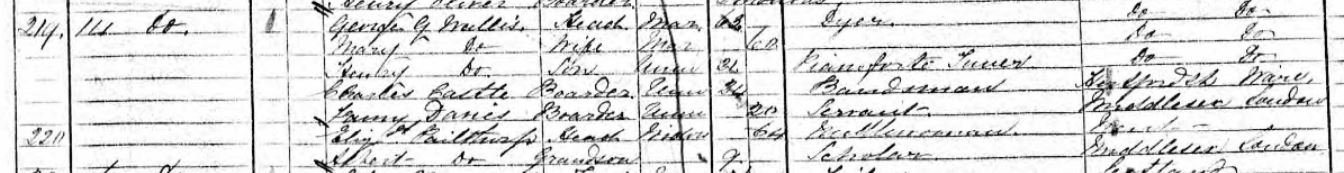 Henry Oliver Boarder
219. 14 Do. 1 George G Willis Head Mar 62 Dyer Do Do
Mary Do Wife Mar 60 Do Do
Henry Do. Son Unm 21 Pianoforte Tuner Do Do
Charles Castle Boarder Unm 24 Bandsman Ware
Fanny Davies Boarder Unm 20 Servant Middlesex London
220 Head Widow 64
Albert Do Grandson 9 Scholar Middlesex London
Scotland